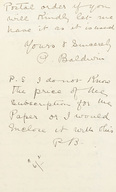 Postal order if you
will kindly let me
have it as it issued
Yours Sincerely
C Baldwin
P.S I do not know
the price of the
Subscription for the
Paper or I would
inclose it with this